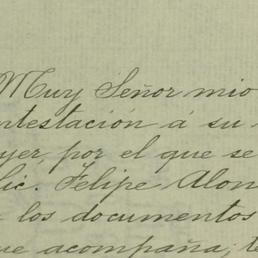 Muy Señor mio
ntestación á su
yer, por el que se
Lic. Felipe Alon
los documentos
ue acompaña; te